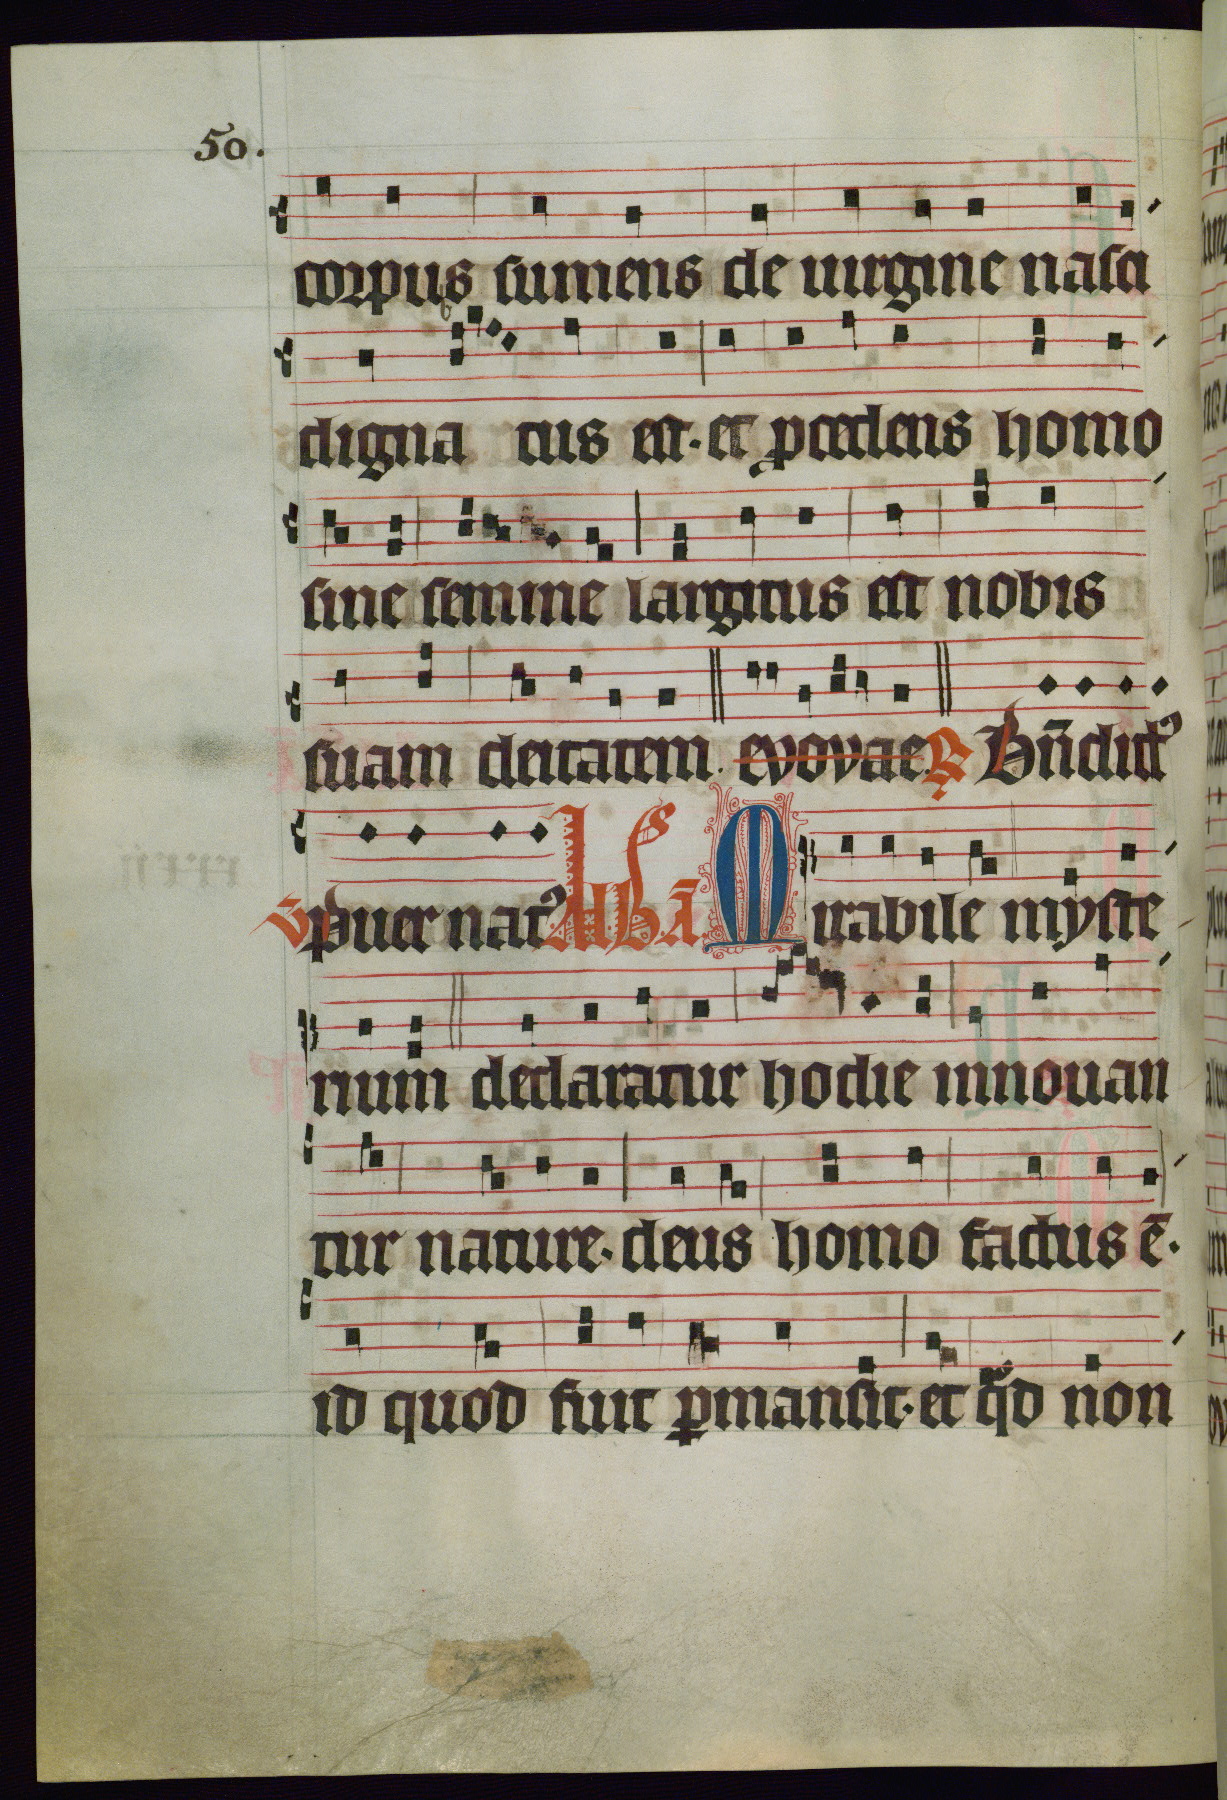 50.
corpus sumens de uirgine nasci
digna tus est. et pcedens homo
sine semine largitus est nobis
suam deitatem. evovae. R Bn̄dict⁹
v̄ puer nat⁹ Mirabile myste
rium declaratur hodie innouan
tur nature. deus homo factus ē.
id quod fuit pmansit. et qd non